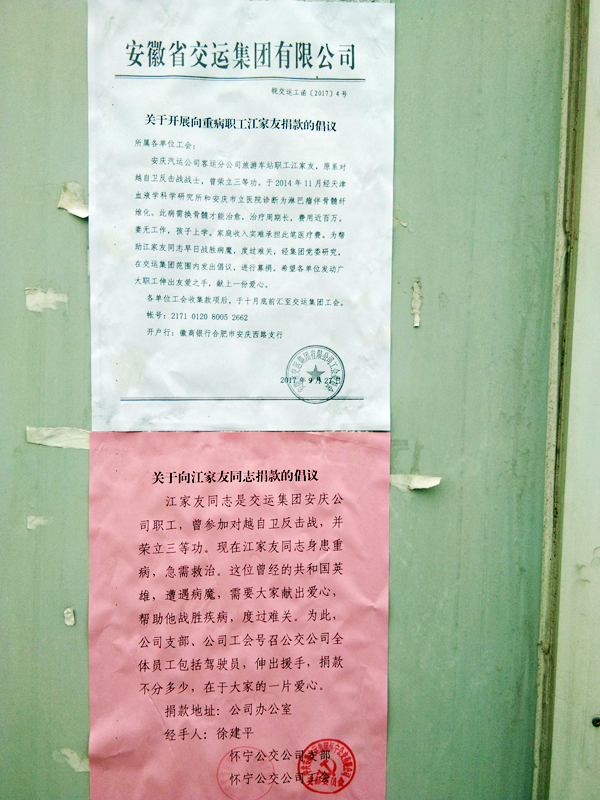 安徽省交运集团有限公司
皖交运工函〔2017〕4号
关于开展向重病职工江家友捐款的倡议
所属各单位工会：
安庆汽运公司客运分公司旅游车站职工江家友，原系对
越自卫反击战战士，曾荣立三等功。于2014年11月经天津
血液学科学研究所和安庆市立医院诊断为淋巴瘤伴骨髓纤
维化。此病需换骨髓才能治愈，治疗周期长，费用近百万。
妻无工作，孩子上学。家庭收入实难承担此笔医疗费。为帮
助江家友同志早日战胜病魔，度过难关，经集团党委研究，
在交运集团范围内发出倡议，进行募捐。希望各单位发动广
大职工伸出友爱之手，献上一份爱心。
各单位工会收集款项后，于十月底前汇至交运集团工会。
帐号：2171 0120 8005 2662
开户行：徽商银行合肥市安庆西路支行
2017年9月27日
关于向江家友同志捐款的倡议
江家友同志是交运集团安庆公
司职工，曾参加对越自卫反击战，并
荣立三等功。现在江家友同志身患重
病，急需救治。这位曾经的共和国英
雄，遭遇病魔，需要大家献出爱心，
帮助他战胜疾病，度过难关。为此，
公司支部、公司工会号召公交公司全
体员工包括驾驶员，伸出援手，捐款
不分多少，在于大家的一片爱心。
捐款地址：公司办公室
经手人：徐建平
怀宁公交公司支部
怀宁公交公司工会